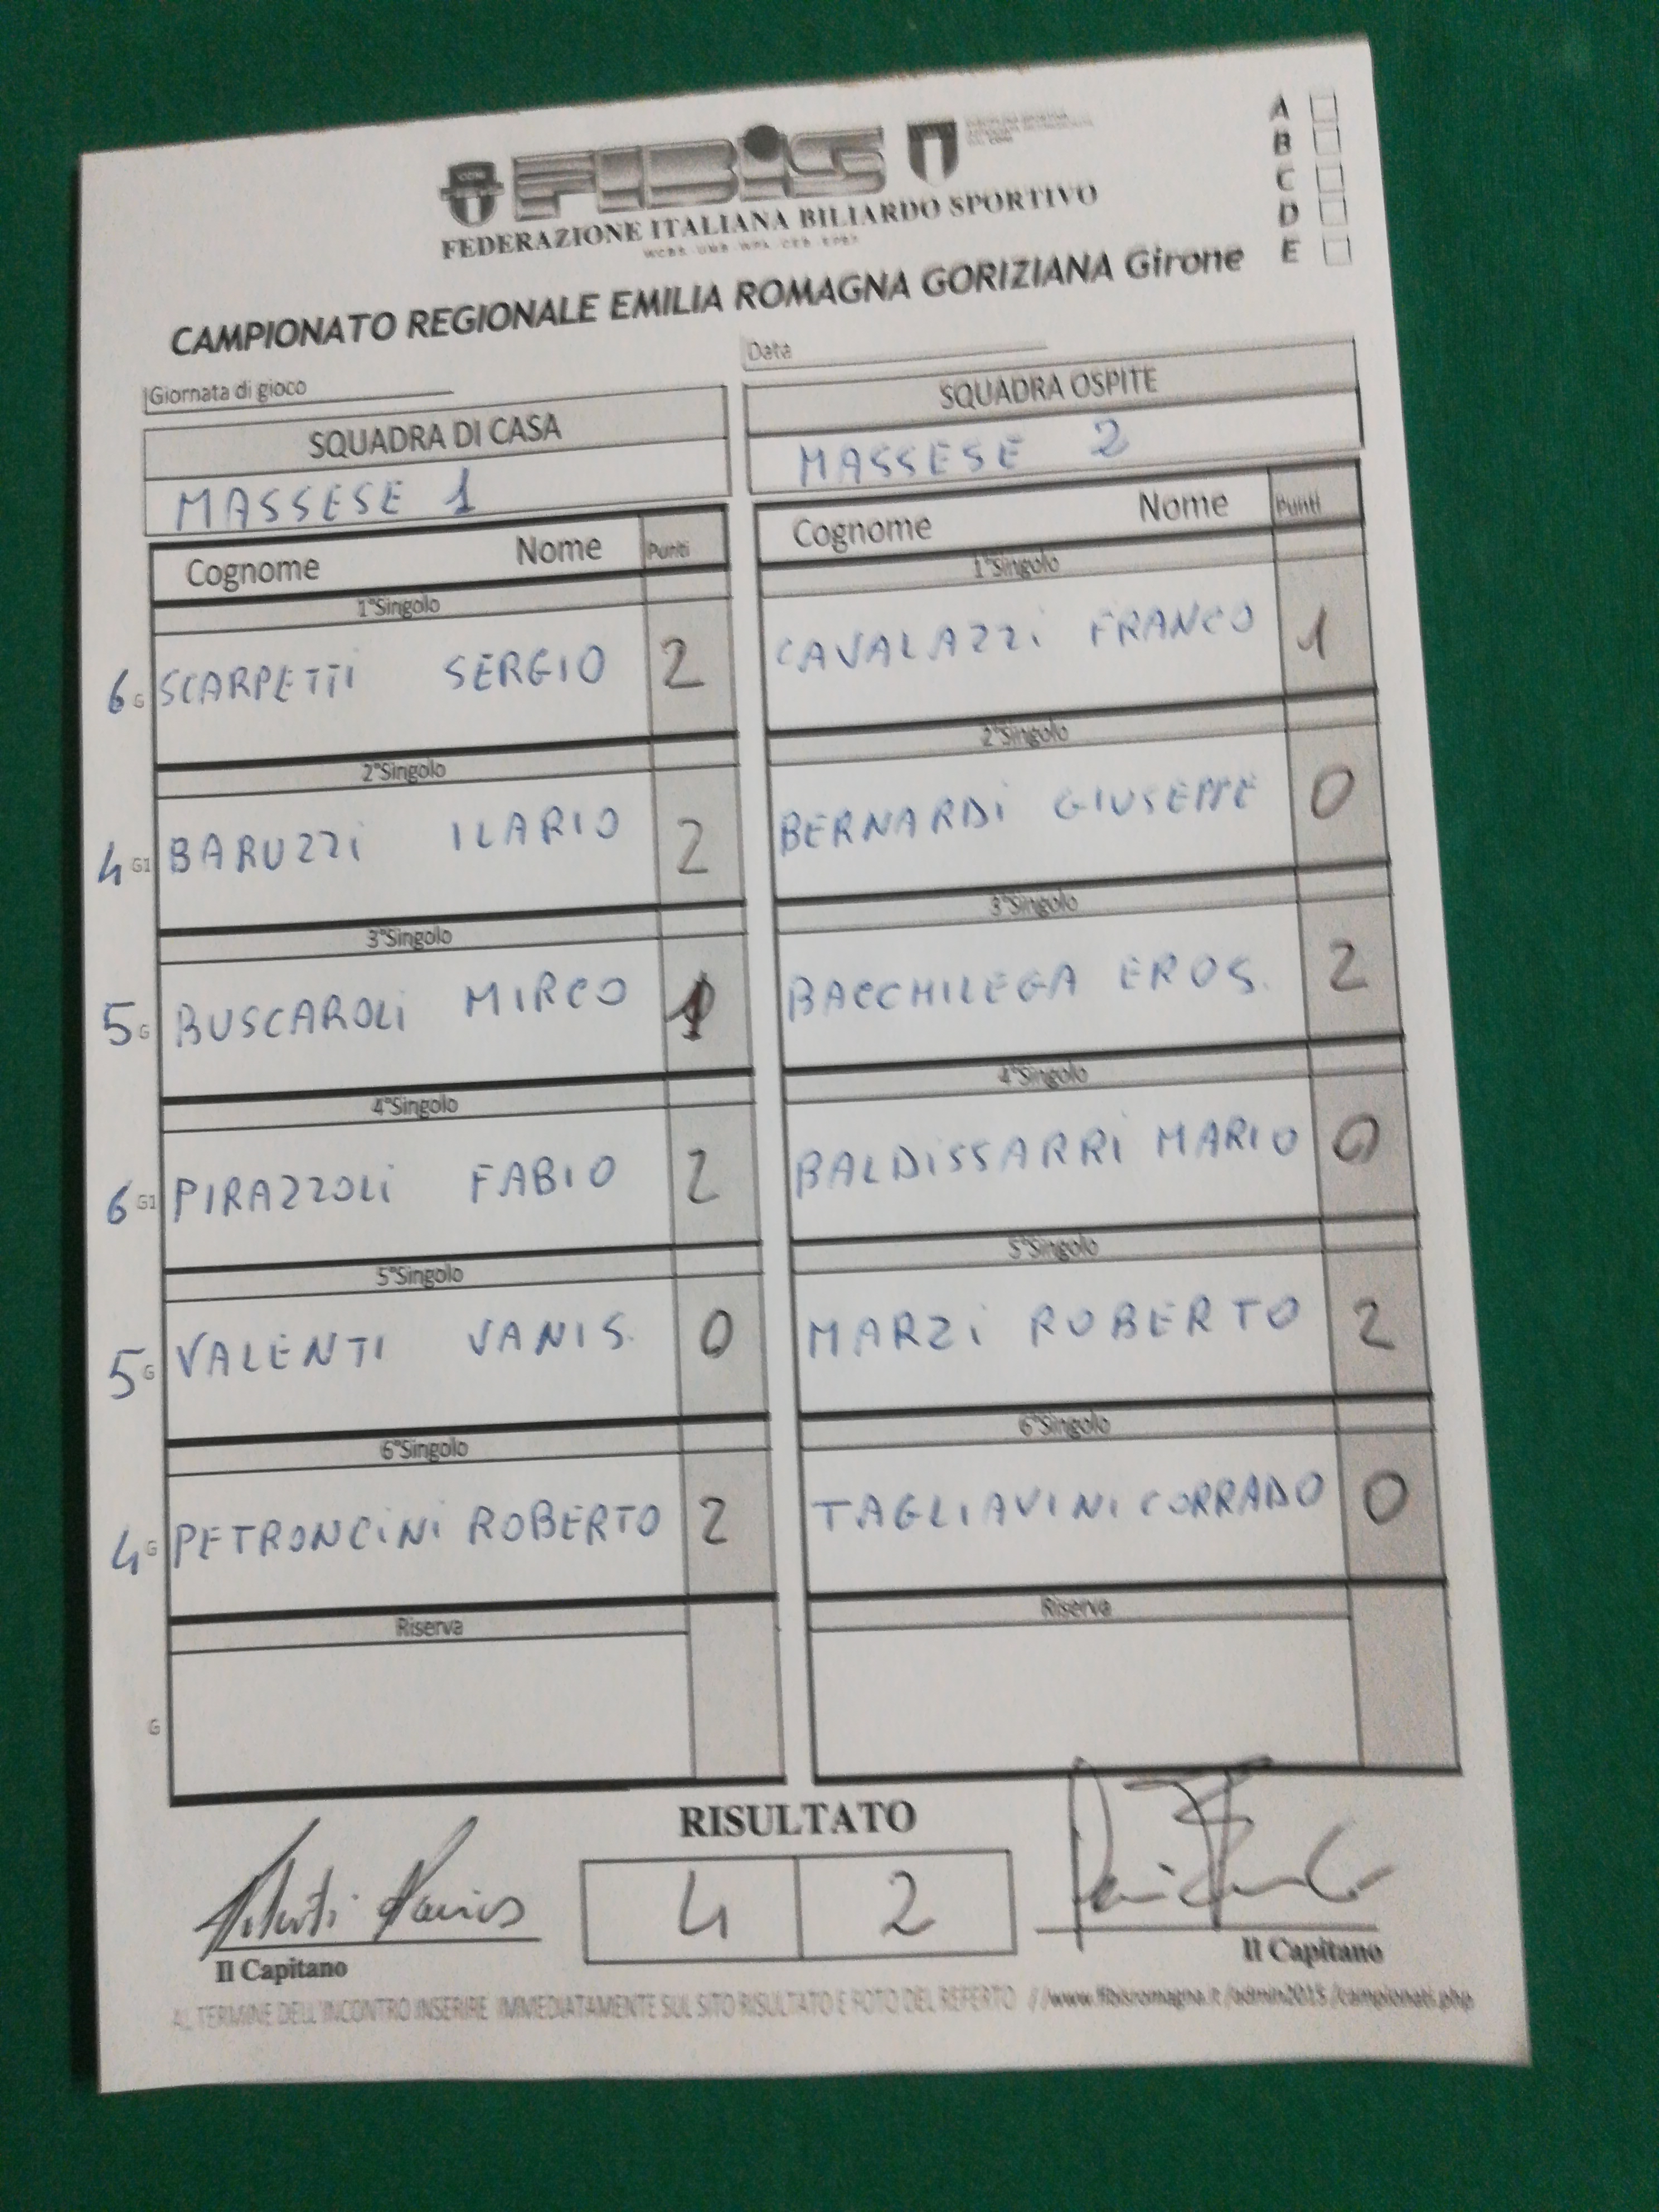 FIBiS
FEDERAZIONE ITALIANA BILIARDO SPORTIVO
A
B
C
D
E
CAMPIONATO REGIONALE EMILIA ROMAGNA GORIZIANA Girone
Giornata di gioco
Data
SQUADRA DI CASA
MASSESE 1
Cognome Nome Punti
1°Singolo
6 G SCARPETTI SERGIO 2
2°Singolo
4 G1 BARUZZi ILARIO 2
3°Singolo
5 G BUSCAROLi MIRCO 1
4°Singolo
6 G1 PIRAZZOLi FABIO 2
5°Singolo
5 G VALENTI VANIS. 0
6°Singolo
4 G PETRONCiNi ROBERTO 2
Riserva
G
SQUADRA OSPITE
MASSESE 2
Cognome Nome Punti
1°Singolo
CAVALAZZi FRANCO 1
2°Singolo
BERNARDi GIUSEPPE 0
3°Singolo
BACCHILEGA EROS. 2
4°Singolo
BALDiSSARRi MARIO 0
5°Singolo
MARZi ROBERTO 2
6°Singolo
TAGLIAVINI CORRADO 0
Riserva
RISULTATO
4 2
Il Capitano
Il Capitano
AL TERMINE DELL'INCONTRO INSERIRE IMMEDIATAMENTE SUL SITO RISULTATO E FOTO DEL REFERTO //www.fibisromagna.it/admin2015/campionati.php